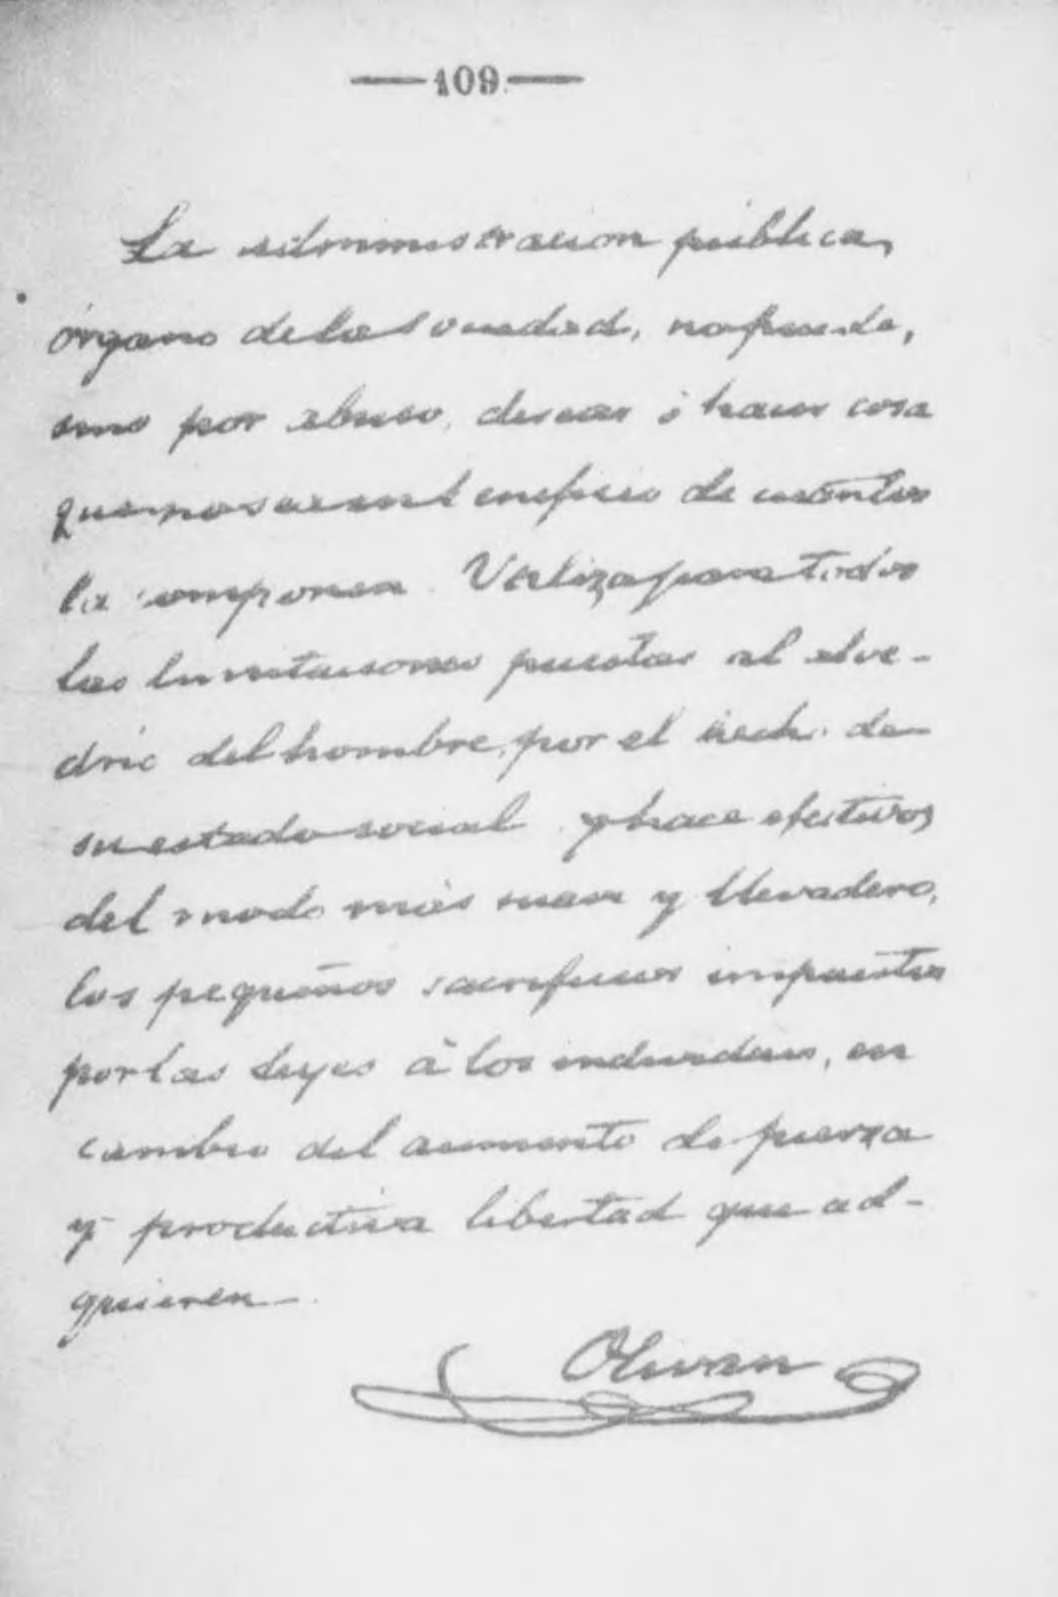 —109.—
La administracion pública,
órgano de la sociedad, no puede,
sino por abuso, desear ó hacer cosa
que no sea en beneficio de cuantos
la componen. Utiliza para todos
las limitaciones puestas al albe-
drio del hombre, por el hecho de
su estado social y hace efectivos
del modo más suave y llevadero,
los pequeños sacrificios impuestos
por las leyes á los individuos, en
cambio del aumento de fuerza
y productiva libertad que ad-
quieren.
Olivan